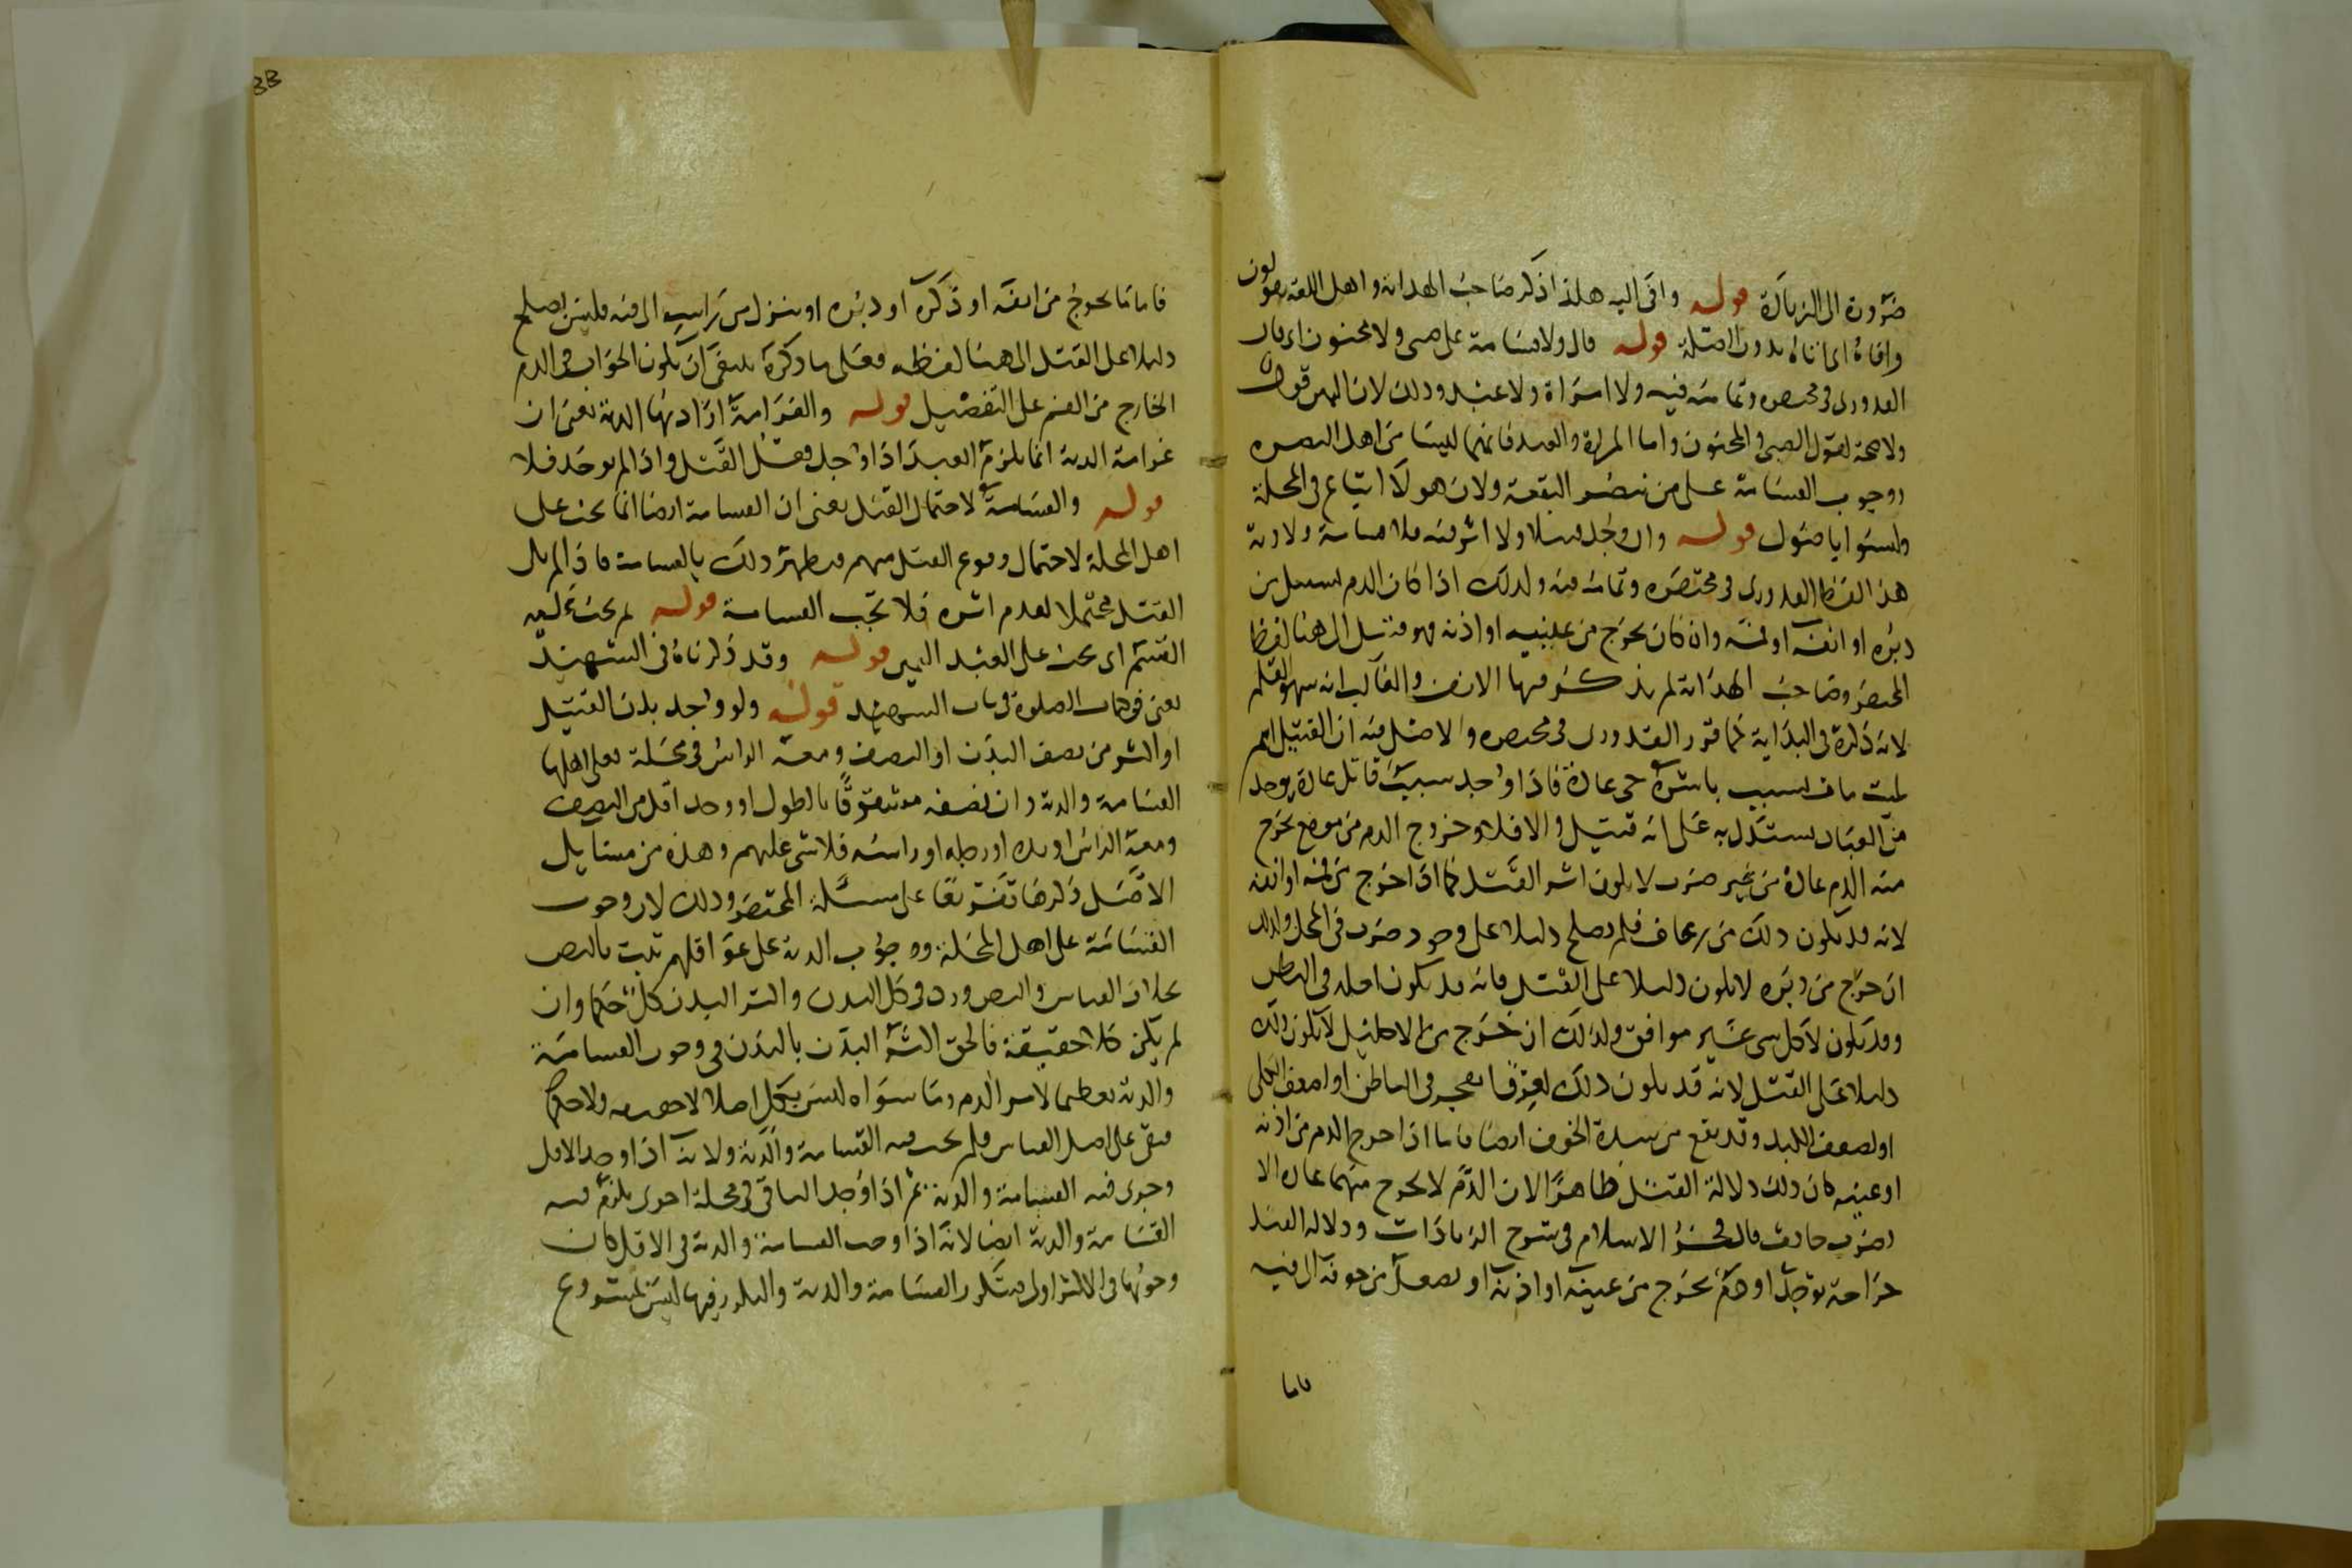 ضرورة الى الزيادة قوله وافى اليه هكذا ذكر صاحب الهداية واهل اللغة يقولون
وافاه اى اتاه بدون الصلة قوله قال ولا قسامة على صبى ولا مجنون اى قال
القدورى فى مختصره وتمامه فيه ولا امراة ولا عبد وذلك لان اليمين قول
ولا صحة لقول الصبى والمجنون واما المراة والعبد فانهما ليسا من اهل النصرة
ووجوب القسامة على من نصر البقعة ولان هولا اتباع فى المحلة
وليسوا باصول قوله وان وجد ميتا ولا اثر فيه فلا قسامة ولا دية
هذا لفظ القدورى فى مختصره وتمامه فيه وكذلك اذا كان الدم يسيل من
دبره او انفه او فمه وان كان يخرج من عينيه او اذنه فهو قتيل الى هنا لفظ
المختصر وصاحب الهداية لم يذكر فيها الانف والغالب انه سهو القلم
لانه ذكره فى البداية كما قرر القدورى فى مختصره والاصل فيه ان القتيل اسم
لميت مات بسبب باشره حى عادة فاذا وجد سبب قاتل عادة يوجد
من العباد يستدل به على انه قتيل والا فلا وخروج الدم من موضع يخرج
منه الدم عادة من غير ضرب لا يكون اثر القتل كما اذا خرج من فمه او انفه
لانه قد يكون ذلك من رعاف فلم يصلح دليلا على وجود ضرب فى المحل وكذلك
ان خرج من دبره لا يكون دليلا على القتل فانه قد يكون اصله فى البطن
وقد يكون لاكل شى غير موافق وكذلك ان خرج من الاحليل لا يكون ذلك
دليلا على القتل لانه قد يكون ذلك لعرق انفجر فى الباطن او لضعف الكلى
او لضعف الكبد وقد يقع من شدة الخوف ايضا فاما اذا خرج الدم من اذنه
او عينه كان ذلك دلالة القتل ظاهرا لان الدم لا يخرج منهما عادة الا
بضرب حادث قال فخر الاسلام فى شرح الزيادات ودلالة القتل
جراحة توجد او دم يخرج من عينه او اذنه او يصعد من جوفه الى فيه
فاما
فاما ما يخرج من انفه او ذكره او دبره او ينزل من راسه الى فيه فليس يصلح
دليلا على القتل الى هنا لفظه فعلى ما ذكره ينبغى ان يكون الجواب فى الدم
الخارج من الفم على التفصيل قوله والغرامة اذا دتها الدية يعنى ان
غرامة الدية انما يلزم العبد اذا وجد فعل القتل واذا لم يوجد فلا
قوله والقسامة لاحتمال القتل يعنى ان القسامة ايضا انما تجب على
اهل المحلة لاحتمال وقوع القتل منهم فيظهر ذلك بالقسامة فاذا لم يكن
القتل محتملا لعدم اثره فلا تجب القسامة قوله لم يجب عليه
القسم اى يجب على العبد اليمين قوله وقد ذكرناه فى الشهيد
يعنى فى كتاب الصلوة فى باب الشهيد قوله ولو وجد بدن القتيل
او اكثر من نصف البدن او النصف ومعه الراس فى محلة فعلى اهلها
القسامة والدية وان نصفه مشقوقا بالطول او وجد اقل من النصف
ومعه الراس او يده او رجله او راسه فلا شى عليهم وهذه من مسايل
الاصل ذكرها تفريعا على مسئلة المختصر وذلك لان وجوب
القسامة على اهل المحلة ووجوب الدية على عواقلهم ثبت بالنص
بخلاف القياس والنص ورد فى كل البدن واكثر البدن كل حكما وان
لم يكن كلا حقيقة فالحق اكثر البدن بالبدن فى وجوب القسامة
والدية تعظيما لامر الدم وما سواه ليس بكل اصلا لا حقيقة ولا حكما
فبقى على اصل القياس فلم يجب فيه القسامة والدية ولانه اذا وجد الاقل
وجرى فيه القسامة والدية ثم اذا وجد الباقى فى محلة اخرى يلزم فيه
القسامة والدية ايضا لانه اذا وجب القسامة والدية فى الاقل كان
وجوبها فى الاكثر اولى فيتكرر القسامة والدية والتكرر فيها ليس بمشروع